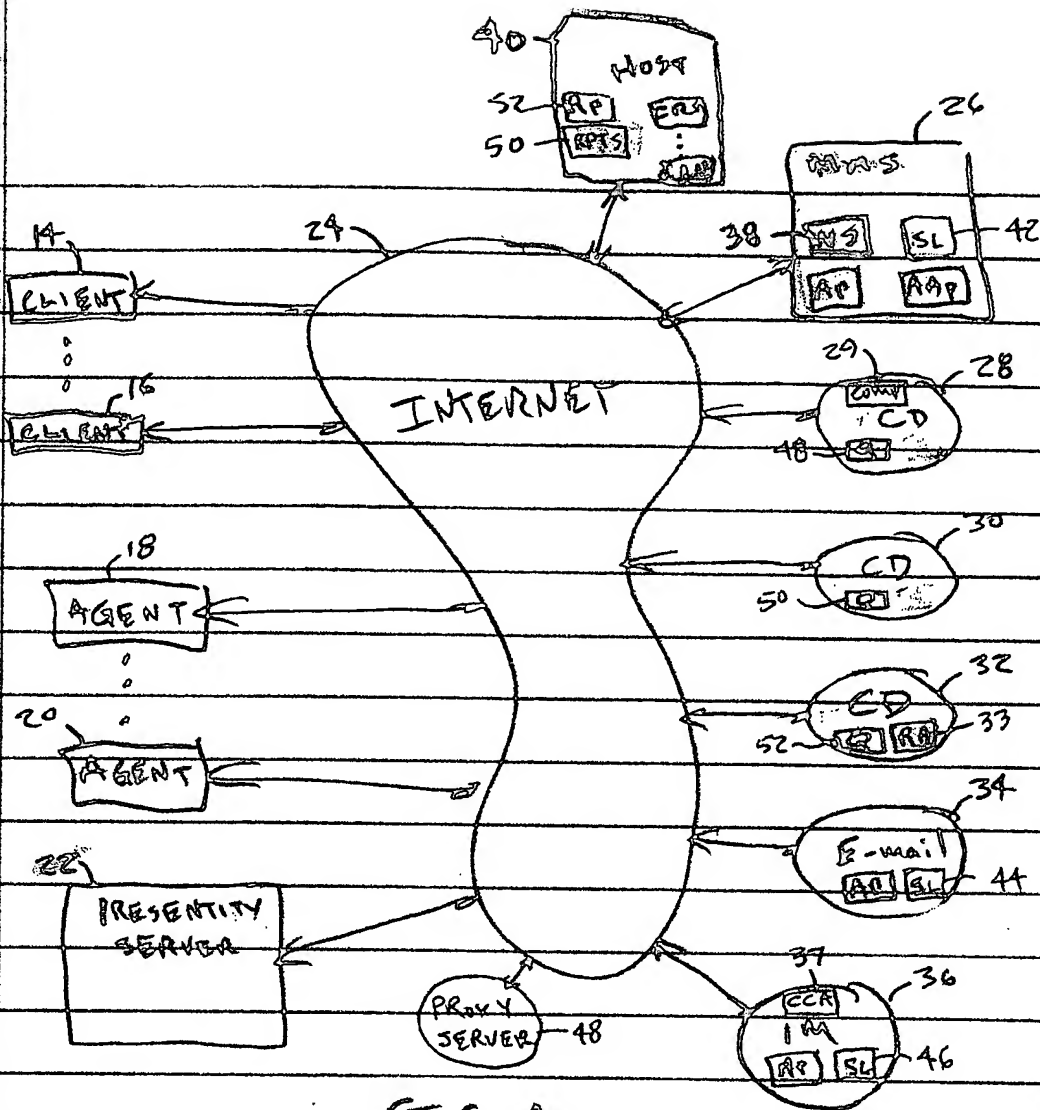 40
HOST
52
RP
50
RPTS
26
MMS
38
NS
SL
42
AP
AAP
14
24
CLIENT
16
CLIENT
INTERNET
29
28
CD
48
18
AGENT
30
CD
50
20
AGENT
32
CD
52
RA
33
34
E-mail
AP
SL
44
22
PRESENTITY
SERVER
PROXY
SERVER
48
37
36
CCA
IM
AP
SL
46